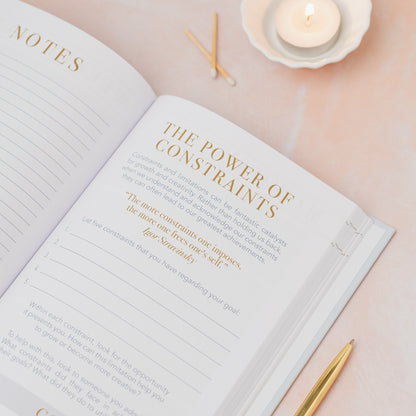 NOTES
THE POWER OF
CONSTRAINTS
Constraints and limitations can be fantastic catalysts
for growth and creativity. Rather than holding us back,
when we understand and acknowledge our constraints
they can often lead to our greatest achievements.
"The more constraints one imposes,
the more one frees one's self."
Igor Stravinsky
List five constraints that you have regarding your goal:
1.
2.
3.
4.
5.
Within each constraint, look for the opportunity
it presents you? How can this limitation help you
to grow or become more creative?
To help with this, look to someone you
What constraints did they face in
their goals? What did they do to